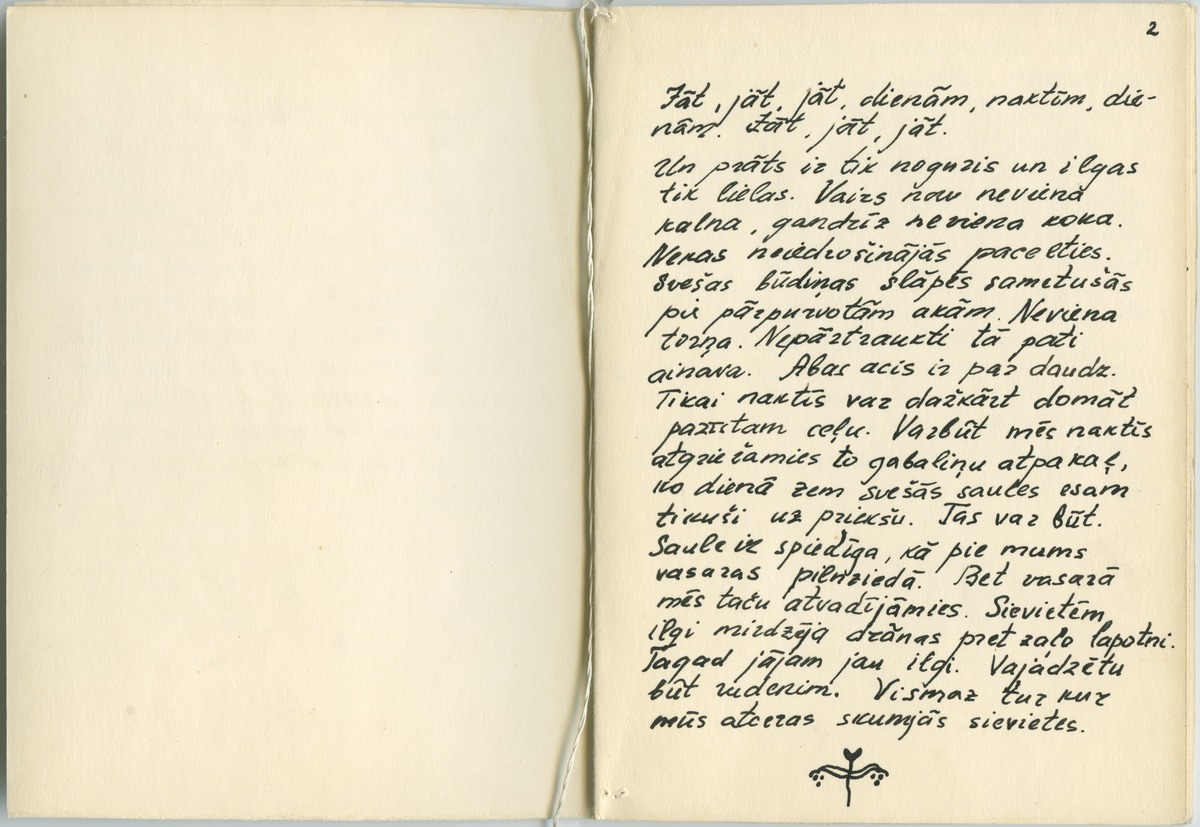 2
Jāt, jāt, jāt, dienām, naktīm, die-
nām. Jāt, jāt, jāt.
Un prāts ir tik noguris un ilgas
tik lielas. Vairs nav neviena
kalna, gandrīz neviena koka.
Nekas neiedrošinājās pacelties.
Svešas būdiņas slāpēs sametušās
pie pārpurvotām akām. Neviena
torņa. Nepārtraukti tā pati
ainava. Abas acis ir par daudz.
Tikai naktīs var dažkārt domāt
pazīstam ceļu. Varbūt mēs naktīs
atgriežamies to gabaliņu atpakaļ,
ko dienā zem svešās saules esam
tikuši uz priekšu. Tas var būt.
Saule ir spiedīga, kā pie mums
vasaras pilnziedā. Bet vasarā
mēs taču atvadījāmies. Sievietēm
ilgi mirdzēja drānas pret zaļo lapotni.
Tagad jājam jau ilgi. Vajadzētu
būt rudenim. Vismaz tur kur
mūs atceras skumjās sievietes.